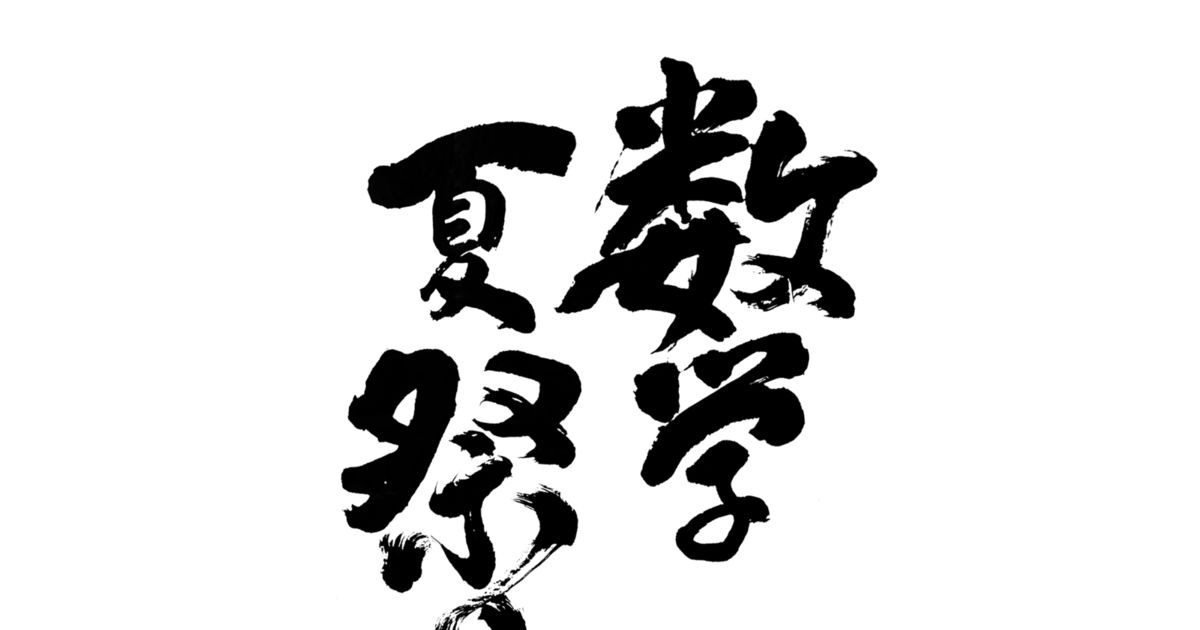 数学
夏祭